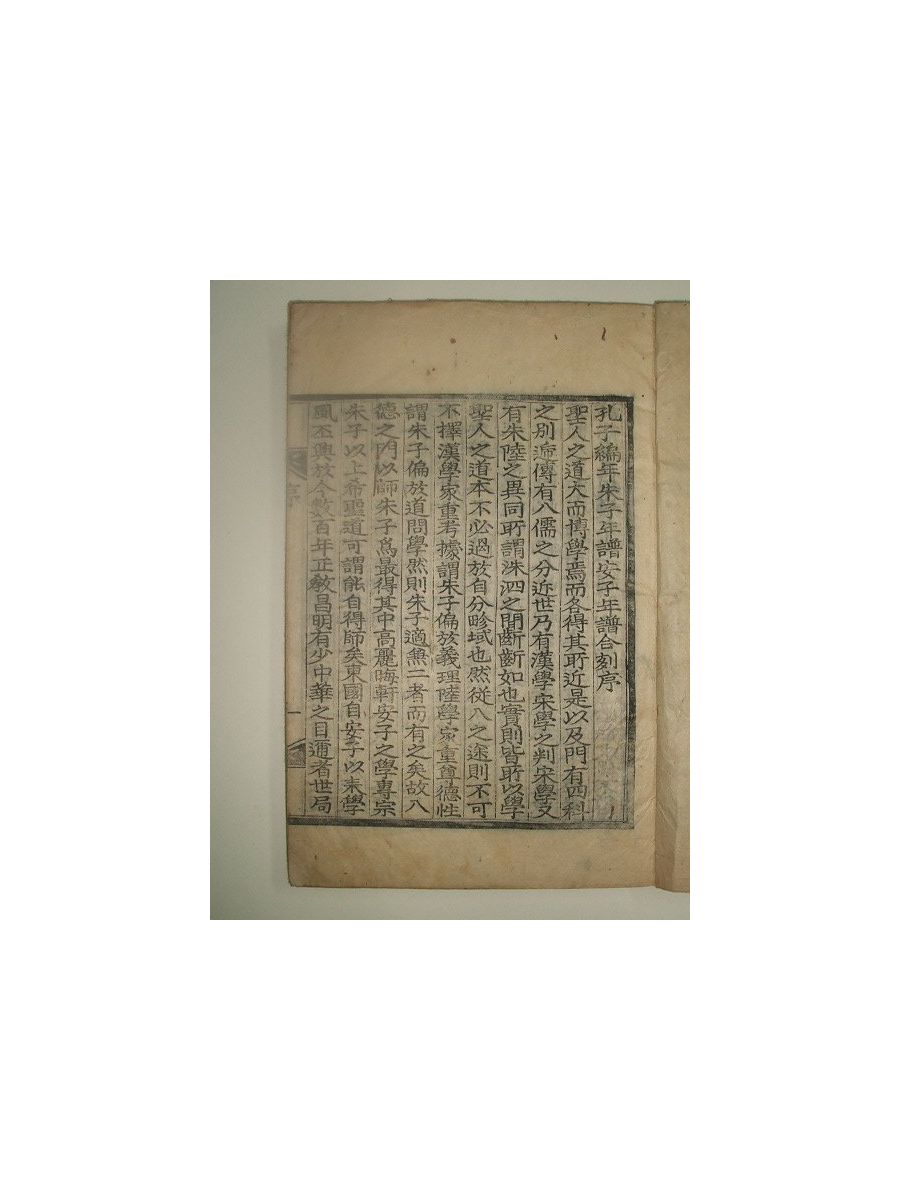 孔子編年朱子年譜安子年譜合刻序
聖人之道大而博學焉而各得其所近是以及門有四科
之別遞傳有八儒之分近世乃有漢學宋學之判宋學又
有朱陸之異同所謂洙泗之間斷斷如也實則皆所以學
聖人之道本不必過於自分畛域也然從入之途則不可
不擇漢學家重考據謂朱子偏於義理陸學家重尊德性
謂朱子偏於道問學然則朱子適無二者而有之矣故入
德之門以師朱子爲最得其中高麗晦軒安子之學專宗
朱子以上希聖道可謂能自得師矣東國自安子以來學
風丕興於今數百年正敎昌明有少中華之目邇者世局
序
一